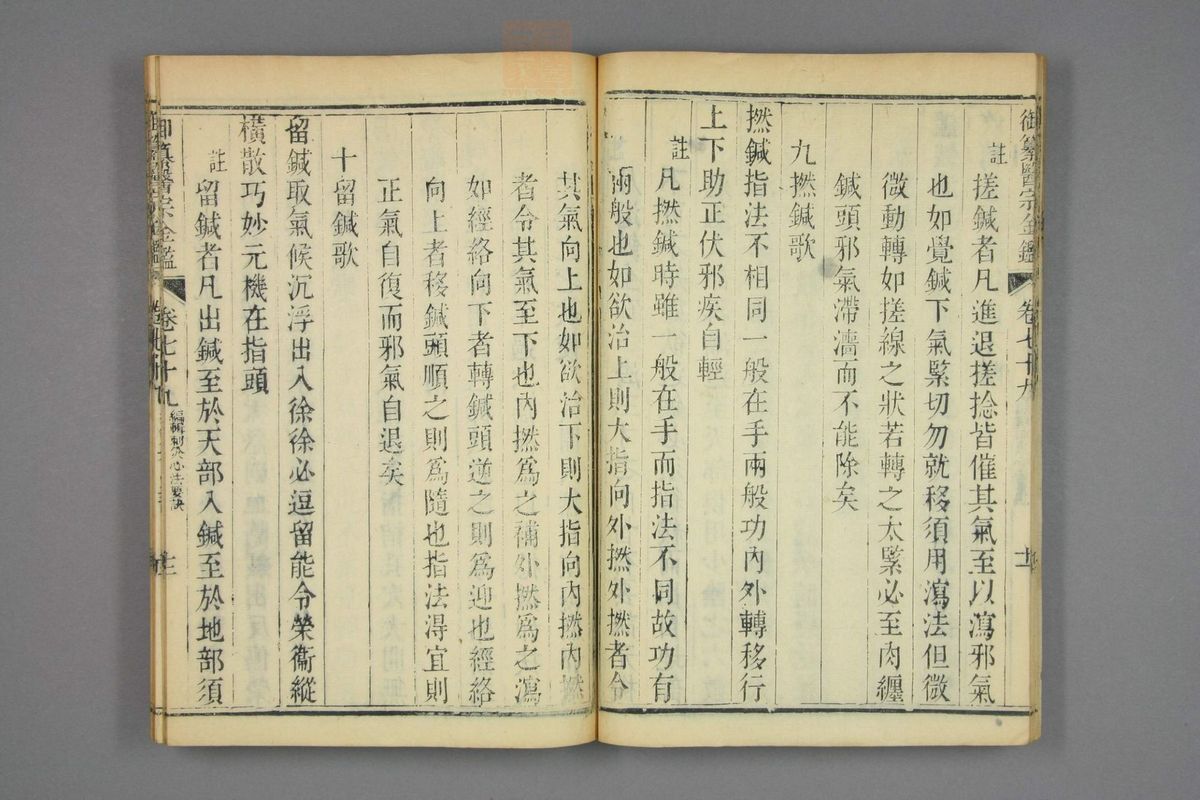 御纂醫宗金鑑 卷七十九
註 搓鍼者凡進退搓捻皆催其氣至以瀉邪氣
也如覺鍼下氣緊切勿就移須用瀉法但微
微動轉如搓線之狀若轉之太緊必至肉纏
鍼頭邪氣滯濇而不能除矣
九撚鍼歌
撚鍼指法不相同一般在手兩般功內外轉移行
上下助正伏邪疾自輕
註 凡撚鍼時雖一般在手而指法不同故功有
兩般也如欲治上則大指向外撚外撚者令
其氣向上也如欲治下則大指向內撚內撚
者令其氣至下也內撚爲之補外撚爲之瀉
如經絡向下者轉鍼頭逆之則爲迎也經絡
向上者移鍼頭順之則爲隨也指法得宜則
正氣自復而邪氣自退矣
十留鍼歌
留鍼取氣候沉浮出入徐徐必逗留能令榮衞縱
橫散巧妙元機在指頭
註 留鍼者凡出鍼至於天部入鍼至於地部須
御纂醫宗金鑑 卷七十九 編輯刺灸心法要訣